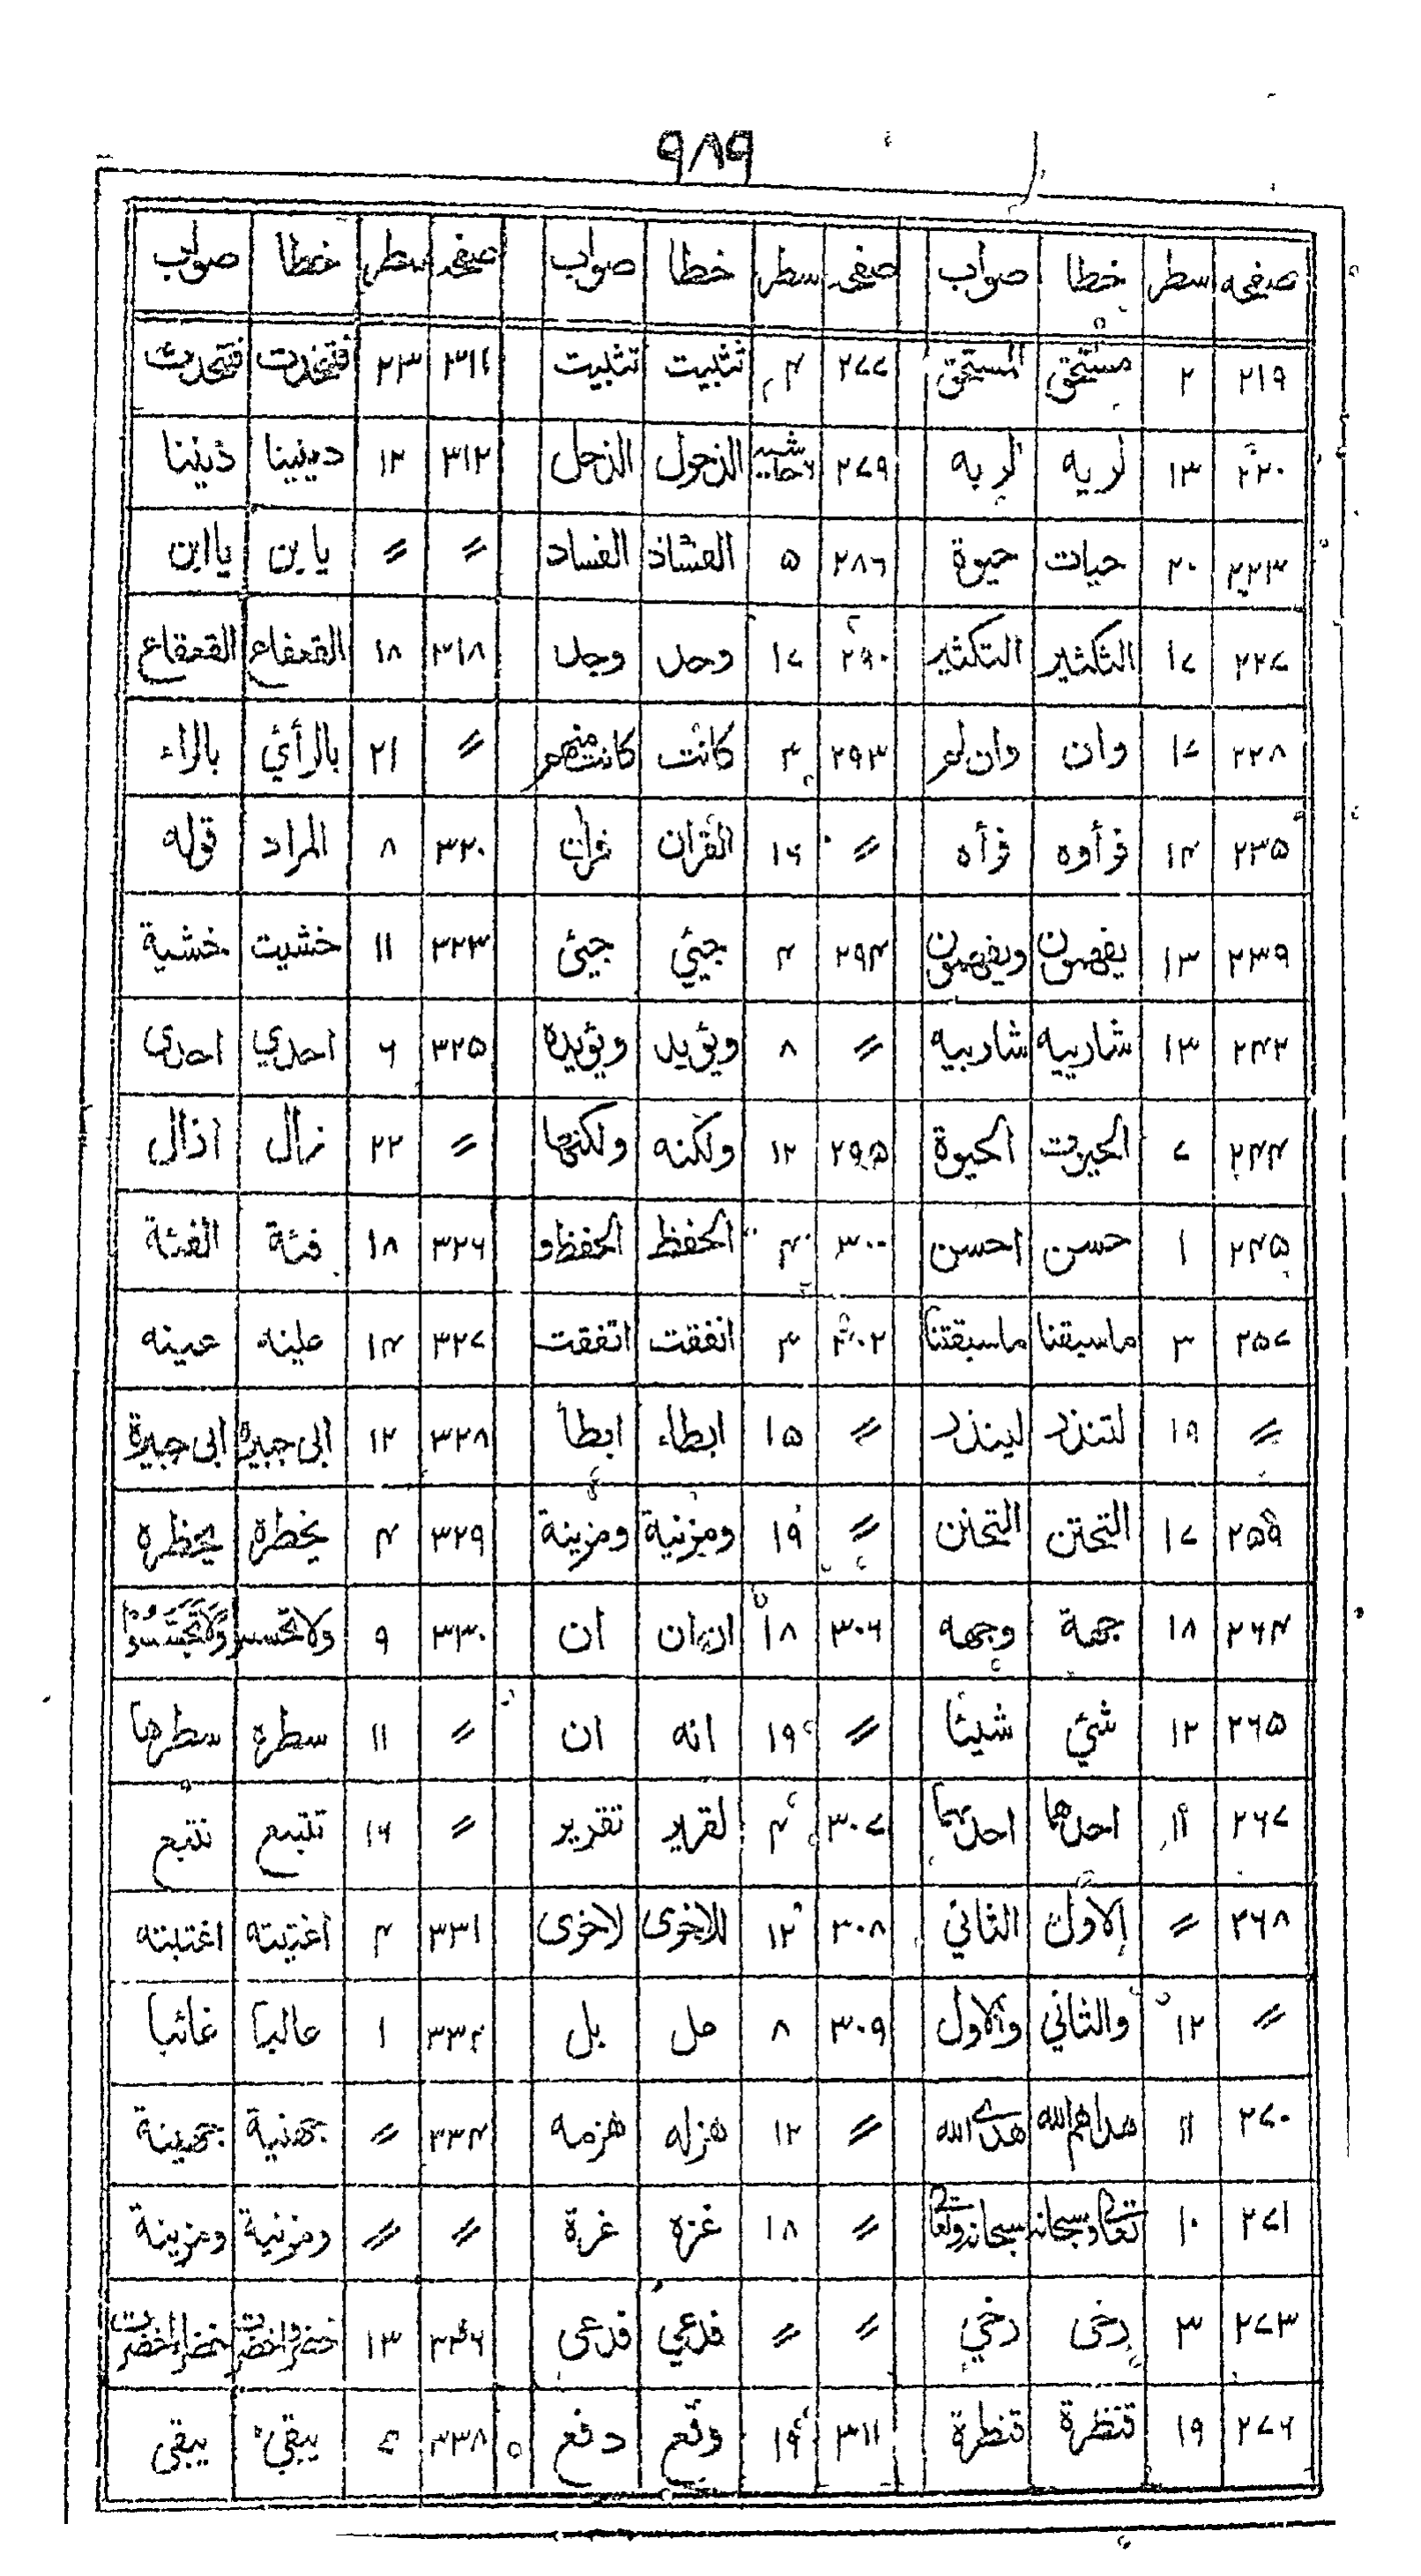 ٩٨٩
صفحه سطر خطا صواب صفحه سطر خطا صواب صفحه سطر خطا صواب
٢١٩ ٢ مستحق المستحق ٢٧٧ ٤ تثبيت تثبيت ٣١١ ٢٣ فتخدت فتحدث
٢٢٠ ١٣ لربه الربه ٢٧٩ حاشيه ٢ الذحول الذحل ٣١٢ ١٢ دينينا ذنبنا
٢٢٣ ٢٠ حيات حيوة ٢٨٦ ٥ الفشاذ الفساد 〃 〃 يابن ياابن
٢٢٧ ١٧ التكثير التكثير ٢٩٠ ١٧ وحد وجد ٣١٨ ١٨ القعفاع القعقاع
٢٢٨ ١٧ وان وان لم ٢٩٣ ٤ كانت كانت منهم 〃 ٢١ بالرأئ بالراء
٢٣٥ ١٤ قرأوه قرأه 〃 ١٦ القران قران ٣٢٠ ٨ المراد قوله
٢٣٩ ١٣ يفهمون ويفهمون ٢٩٤ ٤ جيئ جيئ ٣٢٣ ١١ خشيت خشية
٢٤٢ ١٣ شاربيه شاربيه 〃 ٨ ويؤيد ويؤيده ٣٢٥ ٦ احدي احدى
٢٤٤ ٧ الحيوت الحيوة ٢٩٥ ١٢ ولكنه ولكنها 〃 ٢٢ زال اذال
٢٤٥ ١ حسن احسن ٣٠٠ ٤ الحفظ الحفظ و ٣٢٦ ١٨ فئة الفئة
٢٥٧ ٣ ماسبقنا ماسبقتنا ٣٠٢ ٤ انفقت اتفقت ٣٢٧ ١٤ علينه عينه
〃 ١٩ لتنذر لينذر 〃 ١٥ ابطاء ابطأ ٣٢٨ ١٢ ابي جبيره ابى جبيرة
٢٥٩ ١٧ التحتن التحنن 〃 ١٩ ومزنية ومزينة ٣٢٩ ٤ يخطره يحظره
٢٦٤ ١٨ جهة وجهه ٣٠٦ ١٨ ان ان ان ٣٣٠ ٩ ولاتحسسو ولاتحسسوا
٢٦٥ ١٢ شئ شيئا 〃 ١٩ انه ان 〃 ١١ سطره سطرها
٢٦٧ ١١ احدهما احدهما ٣٠٧ ٤ لقرير تقرير 〃 ١٦ تتبع نتبع
٢٦٨ 〃 الاول الثاني ٣٠٨ ١٢ للاخرى لاخرى ٣٣١ ٤ اغتبته اغتبته
〃 ١٢ والثاني والاول ٣٠٩ ٨ حل بل ٣٣٢ ١ عالبا غائبا
٢٧٠ ١١ هداهم الله هدى الله 〃 ١٢ هزله هزمه ٣٣٤ 〃 جهنية جهينة
٢٧١ ١٠ تعالى وسبحانه سبحانه وتعالى 〃 ١٨ غزه غرة 〃 〃 ومزنية ومزينة
٢٧٣ ٣ رخى رخي 〃 〃 فدعي فدعى ٣٣٦ ١٣
٢٧٦ ١٩ قنظرة قنطرة ٣١١ ١٩ وقع دفع ٣٣٨ ٧ يبقي يبقى